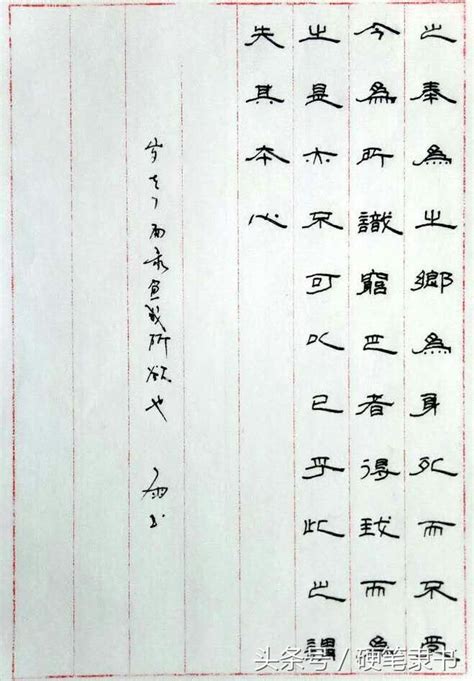 之奉為之鄉為身死而不受
今為所識窮乏者得我而為
之是亦不可以已乎此之謂
失其本心
录鱼我所欲也
头条号 / 硬笔隶书